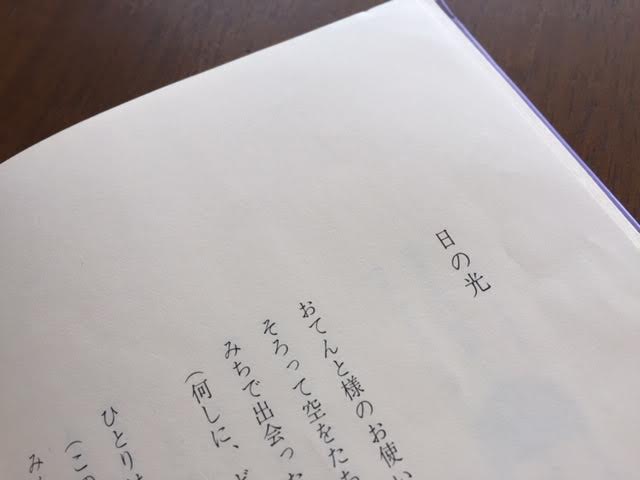 日の光
おてんと様のお使い
そろって空をたち
みちで出会った
(何しに、ど
ひとりは
(この
み